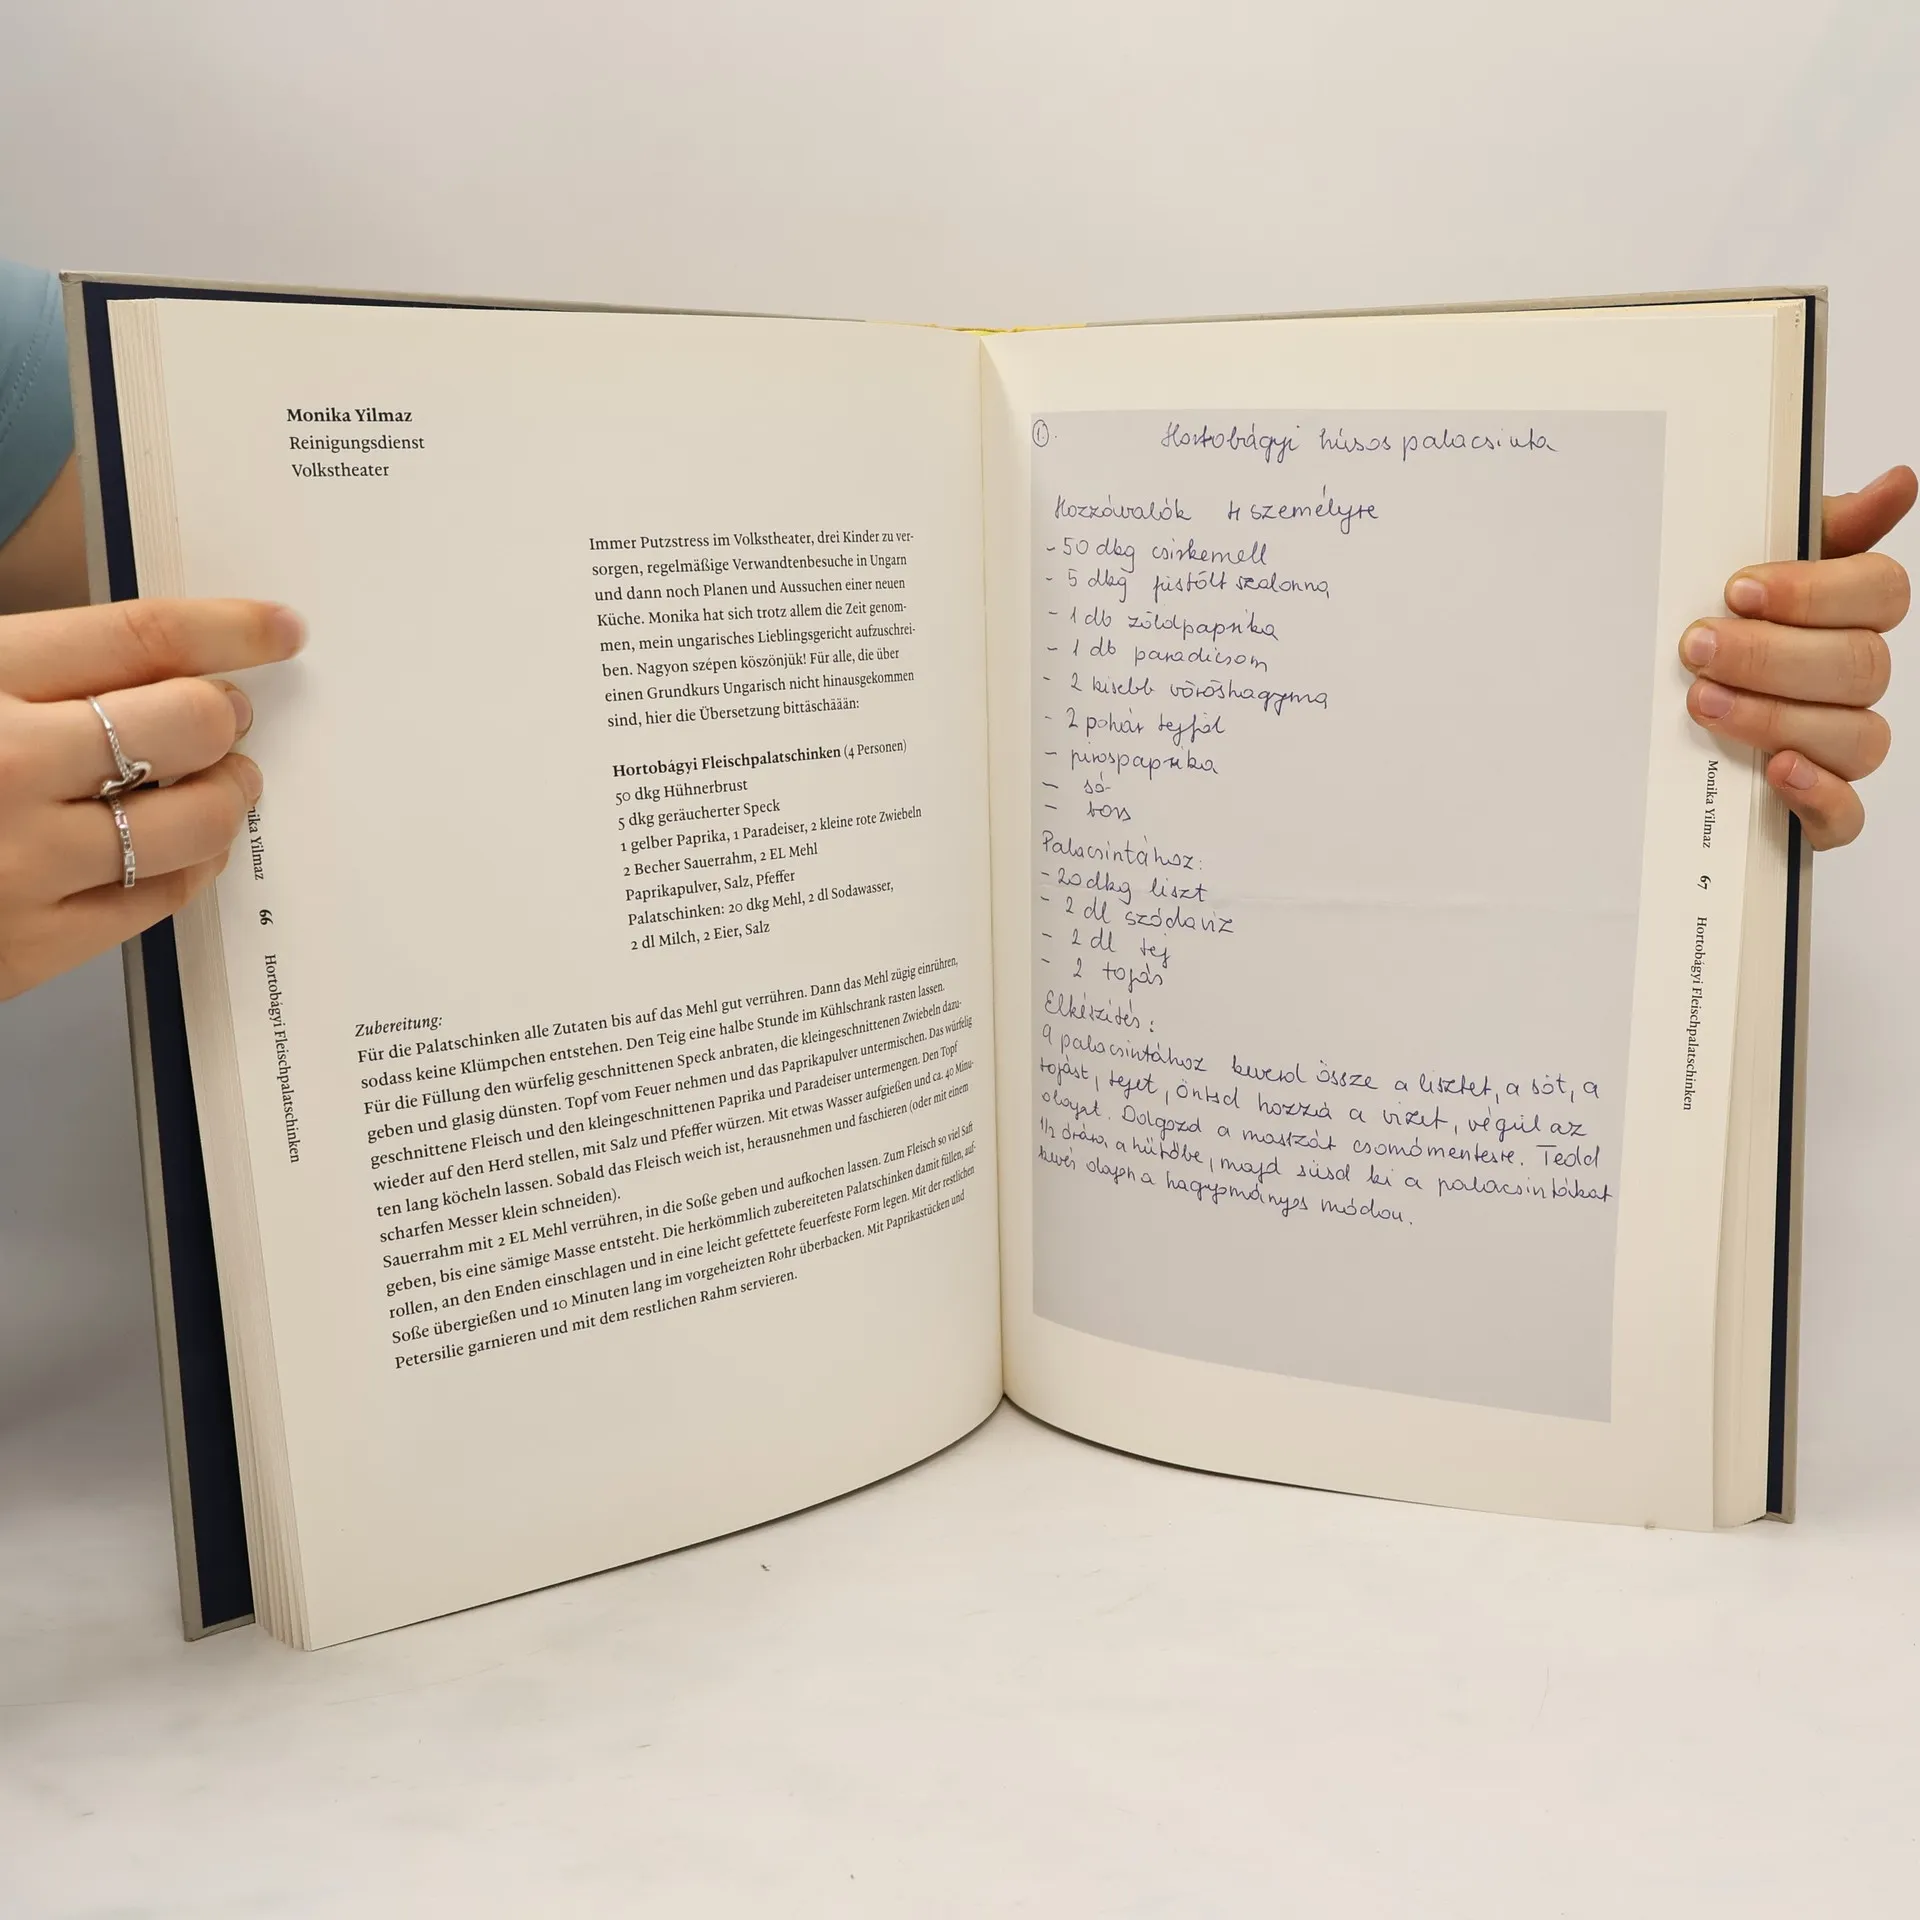 Monika Yilmaz
Reinigungsdienst
Volkstheater
Immer Putzstress im Volkstheater, drei Kinder zu ver-
sorgen, regelmäßige Verwandtenbesuche in Ungarn
und dann noch Planen und Aussuchen einer neuen
Küche. Monika hat sich trotz allem die Zeit genom-
men, mein ungarisches Lieblingsgericht aufzuschrei-
ben. Nagyon szépen köszönjük! Für alle, die über
einen Grundkurs Ungarisch nicht hinausgekommen
sind, hier die Übersetzung bittäschäään:
Hortobágyi Fleischpalatschinken (4 Personen)
50 dkg Hühnerbrust
5 dkg geräucherter Speck
1 gelber Paprika, 1 Paradeiser, 2 kleine rote Zwiebeln
2 Becher Sauerrahm, 2 EL Mehl
Paprikapulver, Salz, Pfeffer
Palatschinken: 20 dkg Mehl, 2 dl Sodawasser,
2 dl Milch, 2 Eier, Salz
Zubereitung:
Für die Palatschinken alle Zutaten bis auf das Mehl gut verrühren. Dann das Mehl zügig einrühren,
sodass keine Klümpchen entstehen. Den Teig eine halbe Stunde im Kühlschrank rasten lassen.
Für die Füllung den würfelig geschnittenen Speck anbraten, die kleingeschnittenen Zwiebeln dazu-
geben und glasig dünsten. Topf vom Feuer nehmen und das Paprikapulver untermischen. Das würfelig
geschnittene Fleisch und den kleingeschnittenen Paprika und Paradeiser untermengen. Den Topf
wieder auf den Herd stellen, mit Salz und Pfeffer würzen. Mit etwas Wasser aufgießen und ca. 40 Minu-
ten lang köcheln lassen. Sobald das Fleisch weich ist, herausnehmen und faschieren (oder mit einem
scharfen Messer klein schneiden).
Sauerrahm mit 2 EL Mehl verrühren, in die Soße geben und aufkochen lassen. Zum Fleisch so viel Saft
geben, bis eine sämige Masse entsteht. Die herkömmlich zubereiteten Palatschinken damit füllen, auf-
rollen, an den Enden einschlagen und in eine leicht gefettete feuerfeste Form legen. Mit der restlichen
Soße übergießen und 10 Minuten lang im vorgeheizten Rohr überbacken. Mit Paprikastücken und
Petersilie garnieren und mit dem restlichen Rahm servieren.
nika Yilmaz 66 Hortobágyi Fleischpalatschinken
1.
Hortobágyi húsos palacsinta
Hozzávalók 4 személyre
- 50 dkg csirkemell
- 5 dkg füstölt szalonna
- 1 db zöldpaprika
- 1 db paradicsom
- 2 kisebb vöröshagyma
- 2 pohár tejföl
- pirospaprika
- só
- bors
Palacsintához:
- 20 dkg liszt
- 2 dl szódavíz
- 2 dl tej
- 2 tojás
Elkészítés:
A palacsintához keverd össze a lisztet, a sót, a
tojást, tejet, öntsd hozzá a vizet, végül az
olajat. Dolgozd a masszát csomómentesre. Tedd
1/2 órára a hűtőbe, majd süsd ki a palacsintákat
kevés olajon a hagyományos módon.
Monika Yilmaz 67 Hortobágyi Fleischpalatschinken